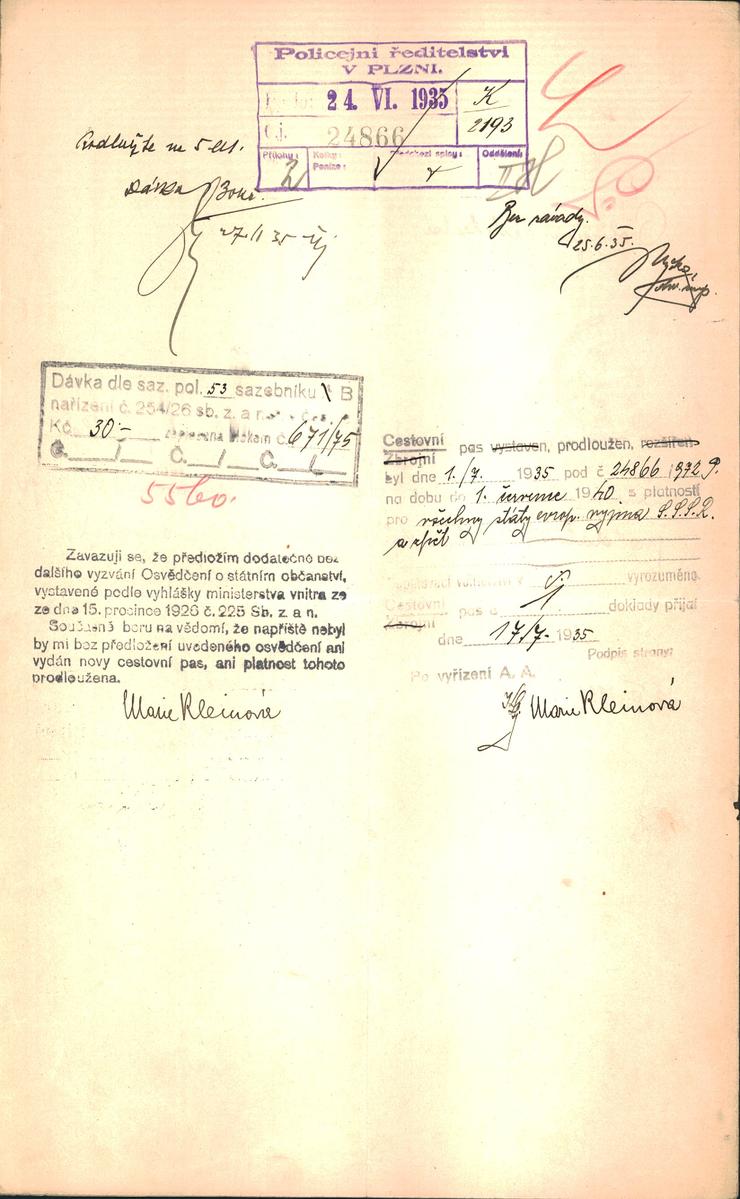 Policejní ředitelství
V PLZNI.
24. VI. 1935
K
2193
Čj.
24866
Přílohy:
2
Kolky:
Peníze:
Předchozí spisy:
Oddělení:
na 5 let.
Dávka
27.VI 35
Bez závady.
25.6.35.
Dávka dle saz. pol. 53 sazebníku B
nařízení č. 254/26 sb. z. a n.
Kč 30.- kolkem č. 671/75
Č. / Č. / Č. /
5560.
Zavazuji se, že předložím dodatečně bez
dalšího vyzvání Osvědčení o státním občanství,
vystavené podle vyhlášky ministerstva vnitra ze
ze dne 15. prosince 1926 č. 225 Sb. z. a n.
Současně beru na vědomí, že napříště nebyl
by mi bez předložení uvedeného osvědčení ani
vydán nový cestovní pas, ani platnost tohoto
prodloužena.
Marie Kleinová
Cestovní
Zbrojní
pas vystaven, prodloužen, rozšířen
byl dne 1./7. 1935 pod č 24866
na dobu do 1. července 1940 s platností
pro všechny státy evrop. vyjma S.S.S.R.
a zpět
vyrozuměno.
Cestovní
Zbrojní
pas a 1 doklady přijal
dne 17/7. 1935
Podpis strany:
Po vyřízení A. A.
Marie Kleinová